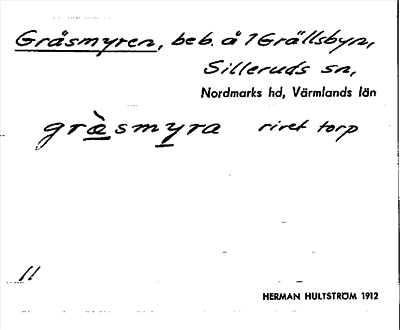 Gråsmyren, beb. å 1 Grällsbyn,
Silleruds sn,
Nordmarks hd, Värmlands län
græ̀smyra rivet torp
11
HERMAN HULTSTRÖM 1912